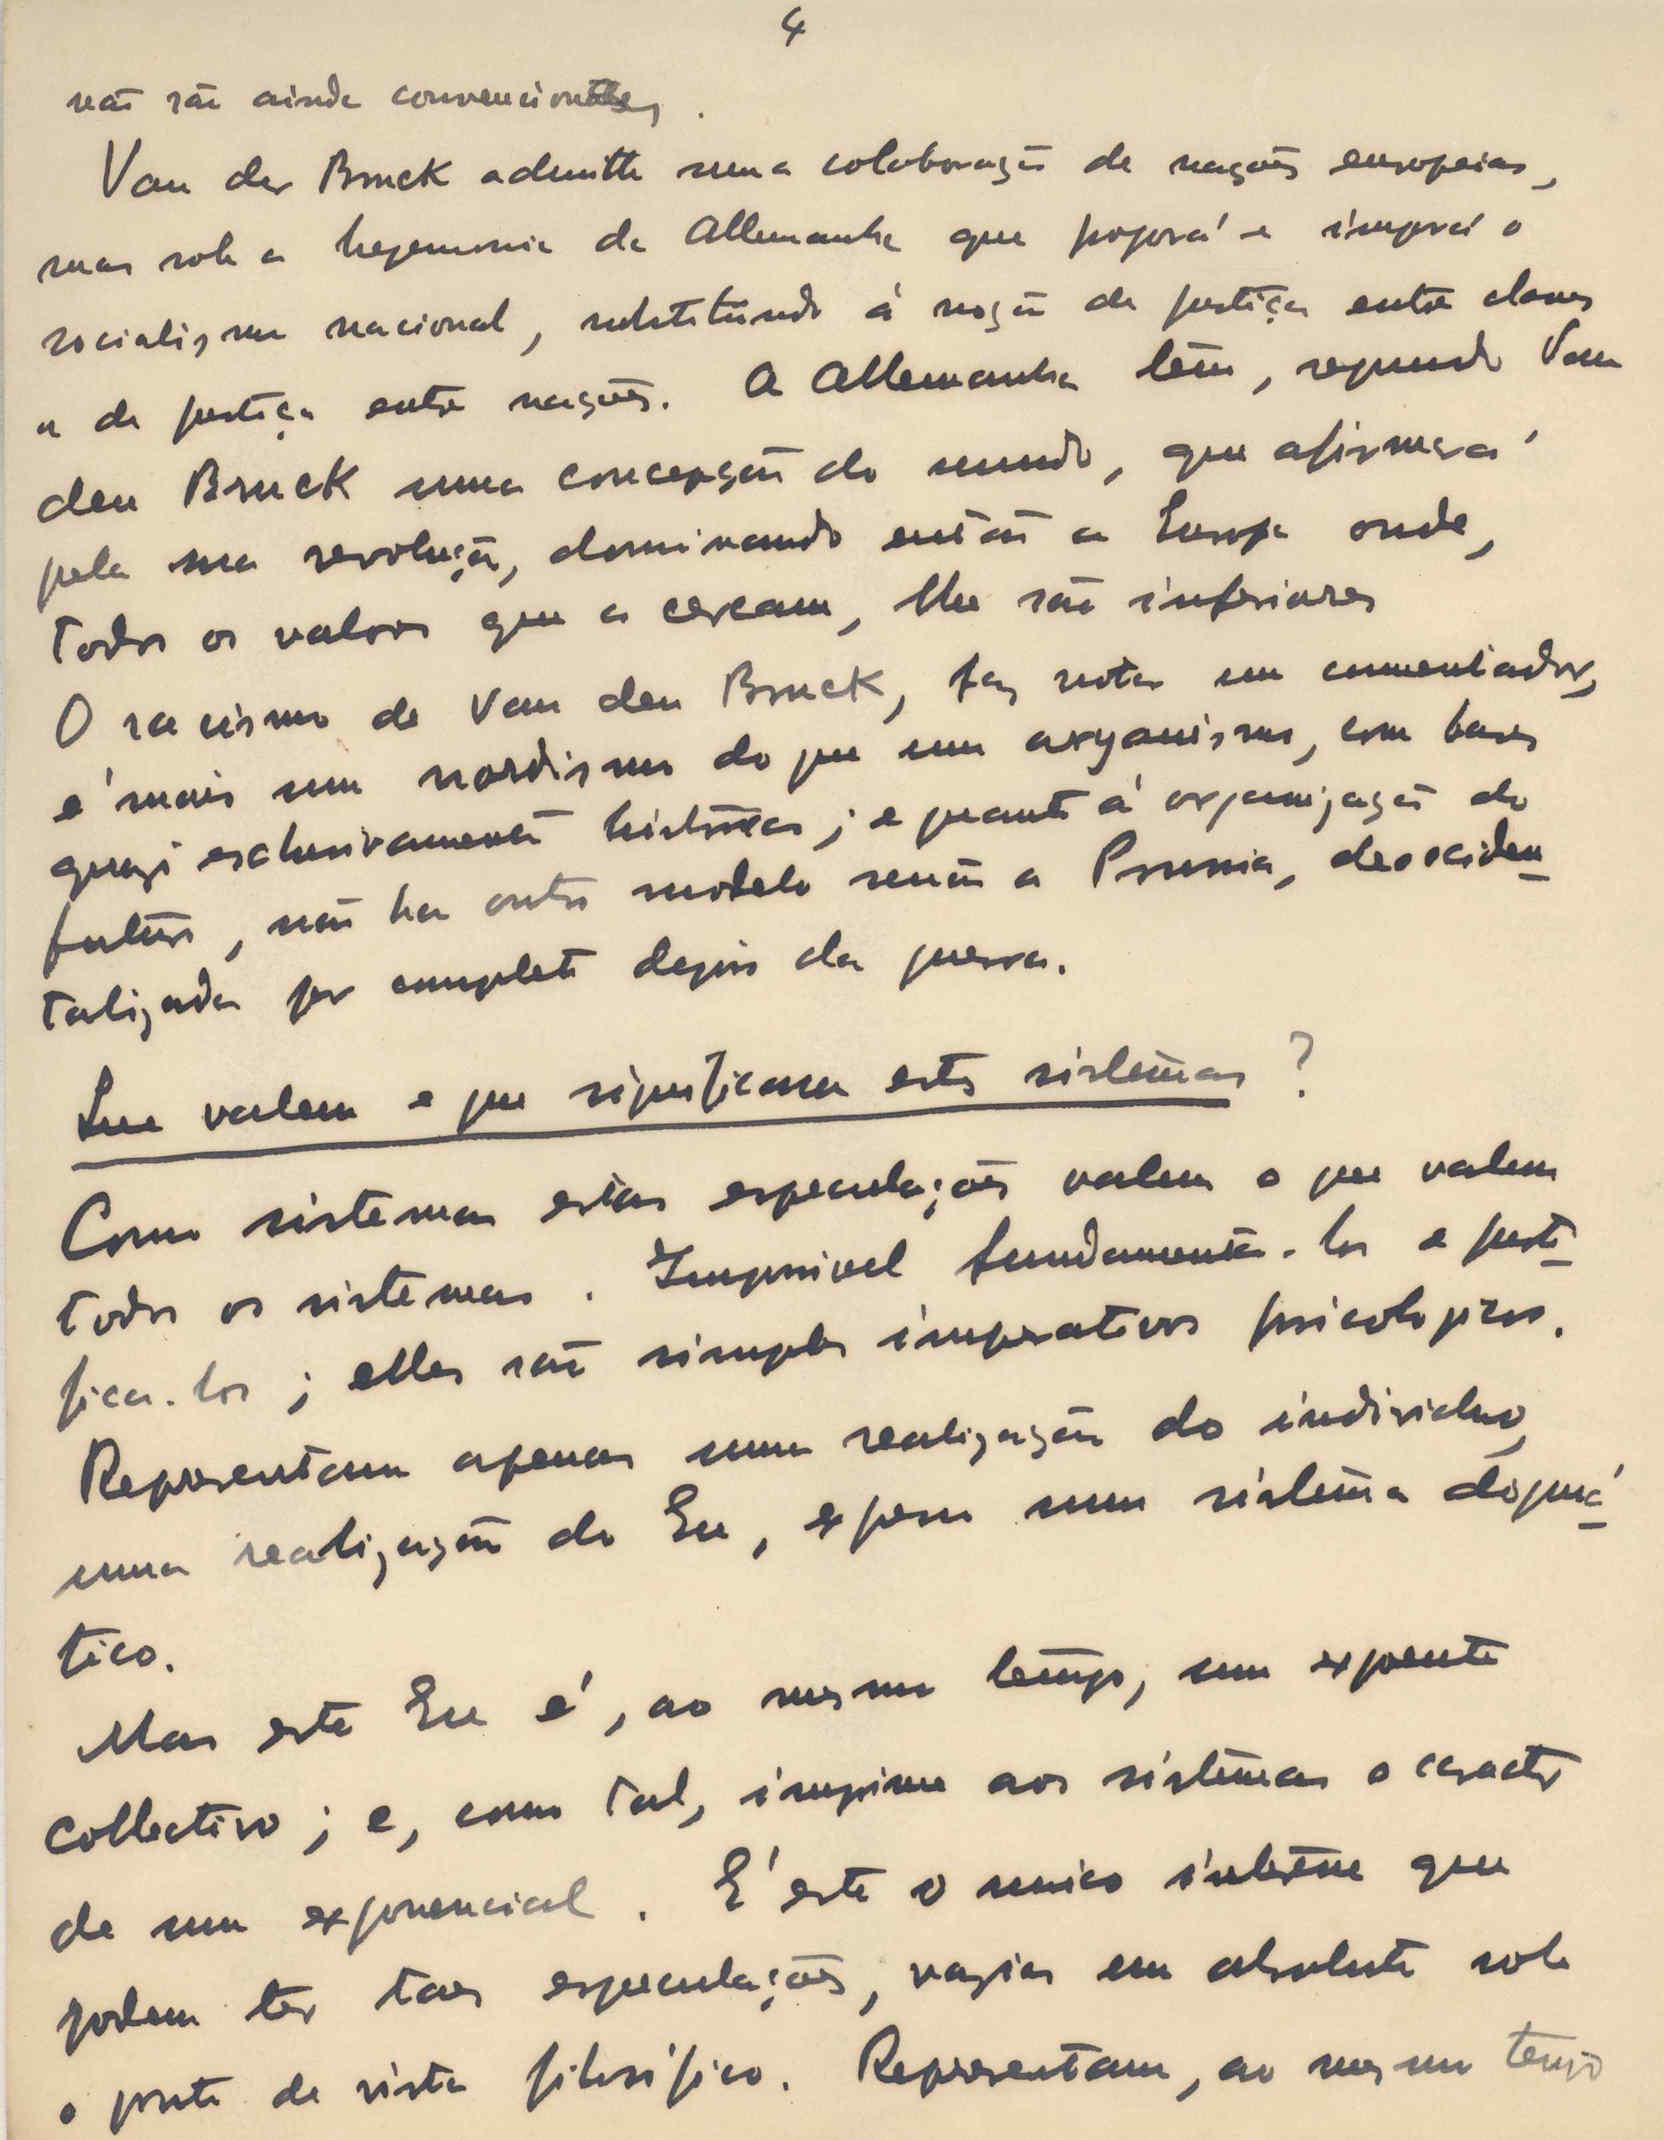 4
não são ainda convencionaes.
Van der Bruck admitte uma colaboração de nações europeias,
mas sob a hegemonia da Allemanha que proporá e imporá o
socialismo nacional, substituindo á noção de justiça entre classes
a de justiça entre nações. A Allemanha têm, segundo Van
den Bruck uma concepção do mundo, que afirmará
pela sua revolução, dominando então a Europa onde,
todos os valores que a cercam, lhe são inferiores
O racismo de Van den Bruck, faz notar um comentador,
é mais um nordismo do que um aryanismo, com bases
quazi exclusivamente históricas; e quanto á organização do
futuro, não ha outro modelo senão a Prussia, desociden-
talizada por completo depois da guerra.
Que valem e que significam estes sistemas?
Como sistemas estas especulações valem o que valem
todos os sistemas. Impossivel fundamenta-los e justi-
fica-los; elles são simples imperativos psicologicos.
Representam apenas uma realização do individuo,
uma realização do Eu, expressa num sistema dogmá-
tico.
Mas este Eu é, ao mesmo tempo, um expoente
collectivo; e, como tal, imprime aos sistemas o caracter
de um exponencial. É este o unico interesse que
podem ter taes especulações, vazias em absoluto sob
o ponto de vista filosófico. Representam, ao mesmo tempo